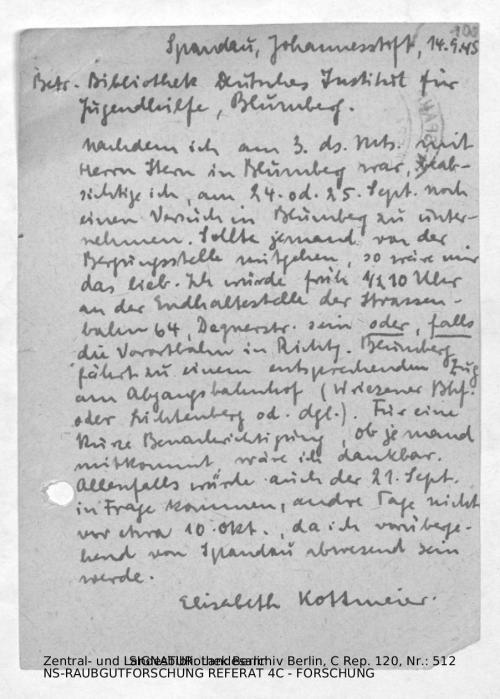 Spandau, Johannesstift, 14.9.45
Betr. Bibliothek Deutsches Institut für
Jugendhilfe, Blumberg.
Nachdem ich am 3. ds. Mts. mit
Herrn Stern in Blumberg war, beab-
sichtige ich, am 24. od. 25. Sept. noch
einen Versuch in Blumberg zu unter-
nehmen. Sollte jemand von der
Bergungsstelle mitgehen, so wäre mir
das lieb. Ich würde früh 1/2 10 Uhr
an der Endhaltestelle der Strassen-
bahn 64, Degnerstr. sein oder, falls
die Vorortbahn in Richtg. Blumberg
fährt zu einem entsprechenden Zug
am Abgangsbahnhof (Wriezener Bhf.
oder Lichtenberg od. dgl.). Für eine
kurze Benachrichtigung, ob jemand
mitkommt, wäre ich dankbar.
Allenfalls würde auch der 21. Sept.
in Frage kommen, andre Tage nicht
vor etwa 10. Okt., da ich vorüberge-
hend von Spandau abwesend sein
werde.
Elisabeth Kottmeier.
Zentral- und Landesbibliothek Berlin Landesarchiv Berlin, C Rep. 120, Nr.: 512
NS-RAUBGUTFORSCHUNG REFERAT 4C - FORSCHUNG